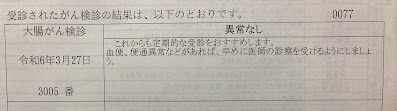 受診されたがん検診の結果は、以下のとおりです。 0077
大腸がん検診 異常なし
これからも定期的な受診をおすすめします。
血便、便通異常などがあれば、早めに医師の診察を受けるようにしましょ
う。
令和6年3月27日
3005 番